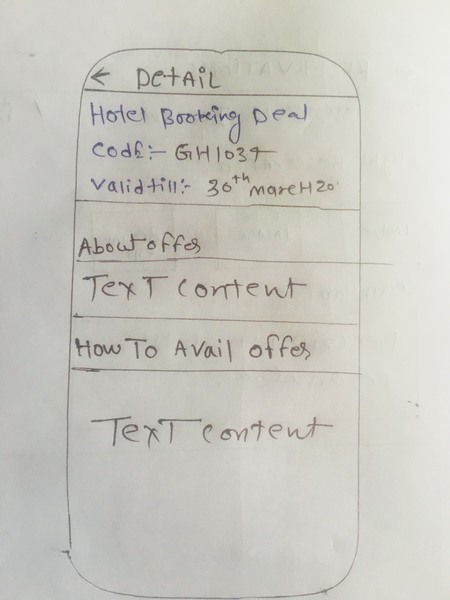 ← DETAIL
Hotel Booking Deal
Code:- GH1037
Valid till:- 30th marcH 20
About offer
TexT content
How To Avail offer
TexT content